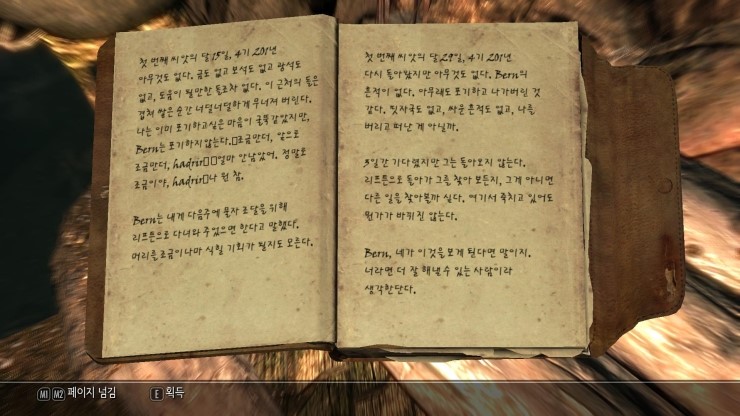 첫 번째 씨앗의 달 15일, 4기 201년
아무것도 없다. 금도 없고 보석도 없고 광석도
없고, 도움이 될만한 돌조차 없다. 이 근처의 돌은
겹쳐 쌓은 순간 너덜너덜하게 무너져 버린다.
나는 이미 포기하고싶은 마음이 굴뚝같았지만,
Bern는 포기하지않는다.□조금만더, 앞으로
조금만더, hadrir□□얼마 안남았어. 정말로
조금이야, hadrir□나 원 참.
Bern는 내게 다음주에 물자 조달을 위해
리프튼으로 다녀와 주었으면 한다고 말했다.
머리를 조금이나마 식힐 기회가 될지도 모른다.
첫 번째 씨앗의 달 29일, 4기 201년
다시 돌아왔지만 아무것도 없다. Bern의
흔적이 없다. 아무래도 포기하고 나가버린 것
같다. 핏자국도 없고, 싸운 흔적도 없고, 나를
버리고 떠난 게 아닐까.
3일간 기다렸지만 그는 돌아오지 않는다.
리프튼으로 돌아가 그를 찾아 보든지, 그게 아니면
다른 일을 찾아볼까 싶다. 여기서 죽치고 있어도
뭔가가 바뀌진 않는다.
Bern, 네가 이것을 보게 된다면 말이지.
너라면 더 잘 해낼 수 있는 사람이라
생각한단다.
M1 M2 페이지 넘김
E 획득